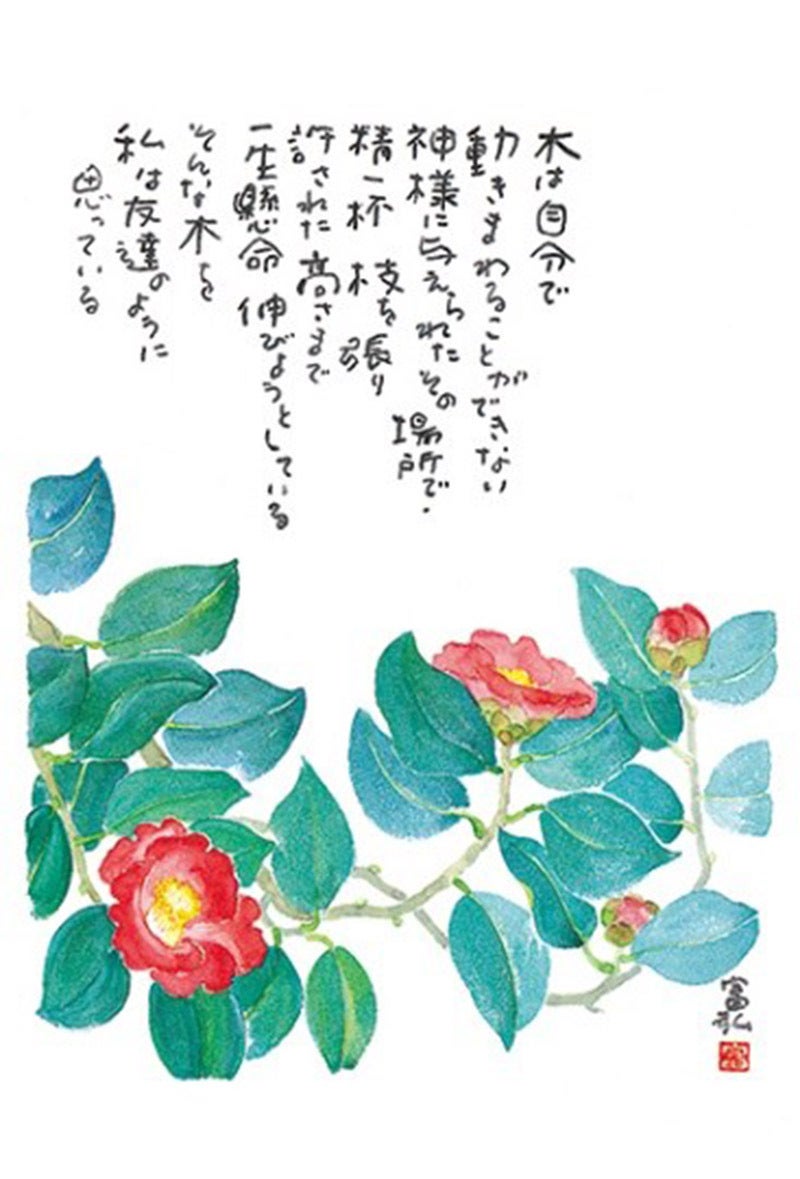 木は自分で
動きまわることができない
神様に与えられたその
場所で・
精一杯 枝を張り
許された高さまで
一生懸命 伸びようとしている
そんな木を
私は友達のように
思っている
富弘